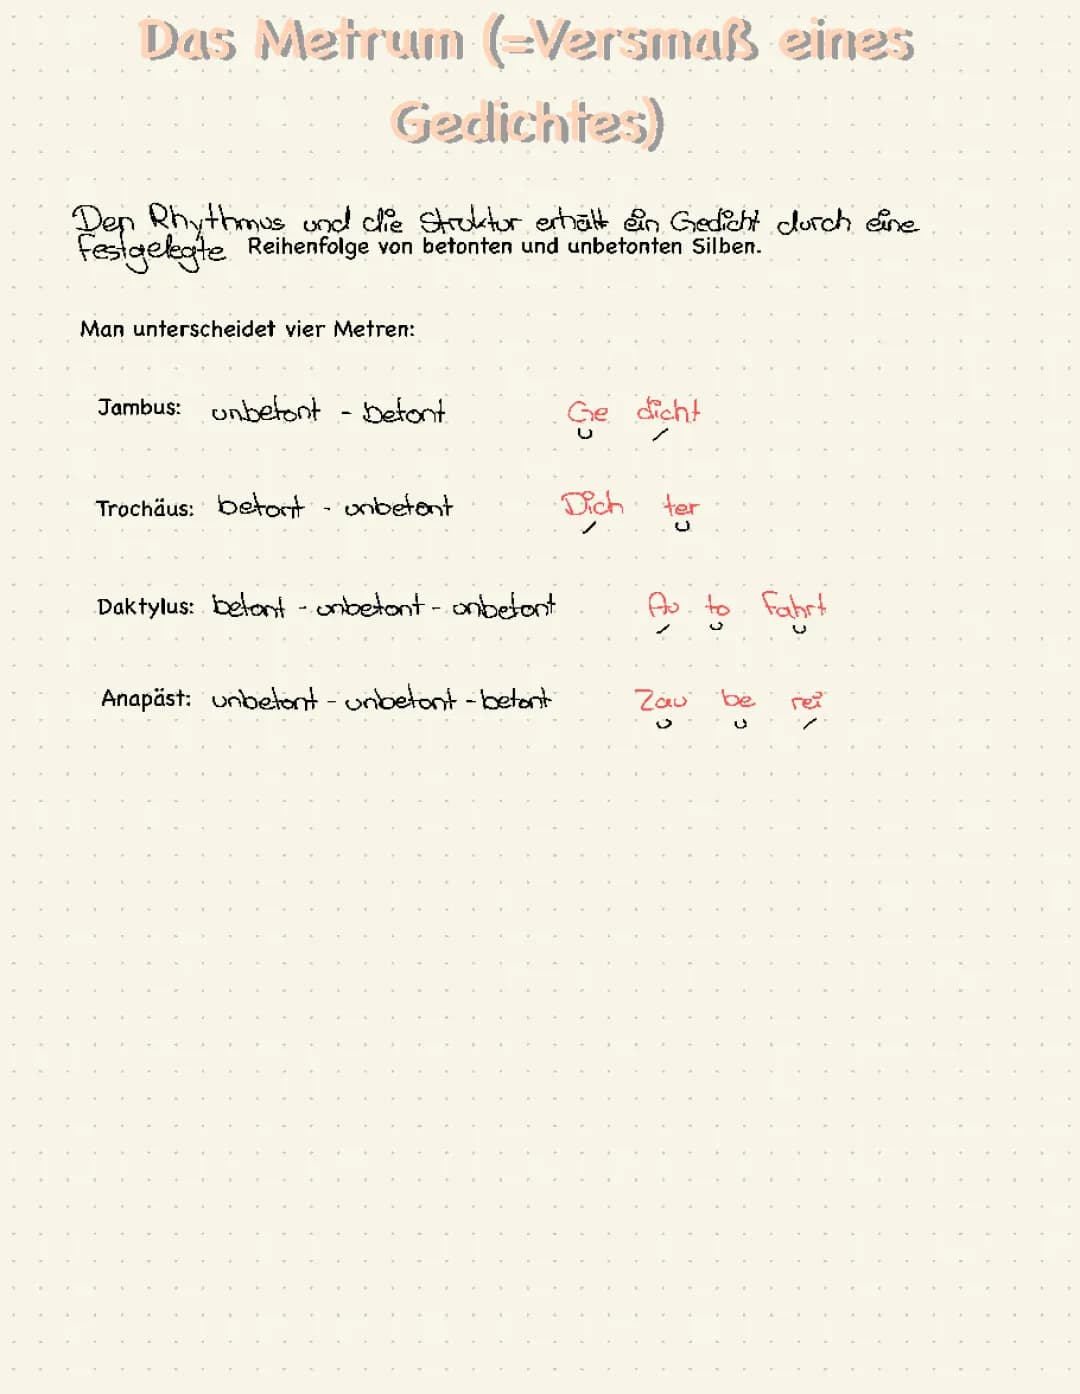 Das Metrum (=Versmaß eines
Gedichtes)
Den Rhythmus und die Struktur erhält ein Gedicht durch eine
festgelegte Reihenfolge von betonten und unbetonten Silben.
Man unterscheidet vier Metren:
Jambus: unbetont - betont Ge dicht
Trochäus: betont - unbetont Dich ter
Daktylus: betont - unbetont - unbetont Au to fahrt
Anapäst: unbetont - unbetont - betont Zau be rei